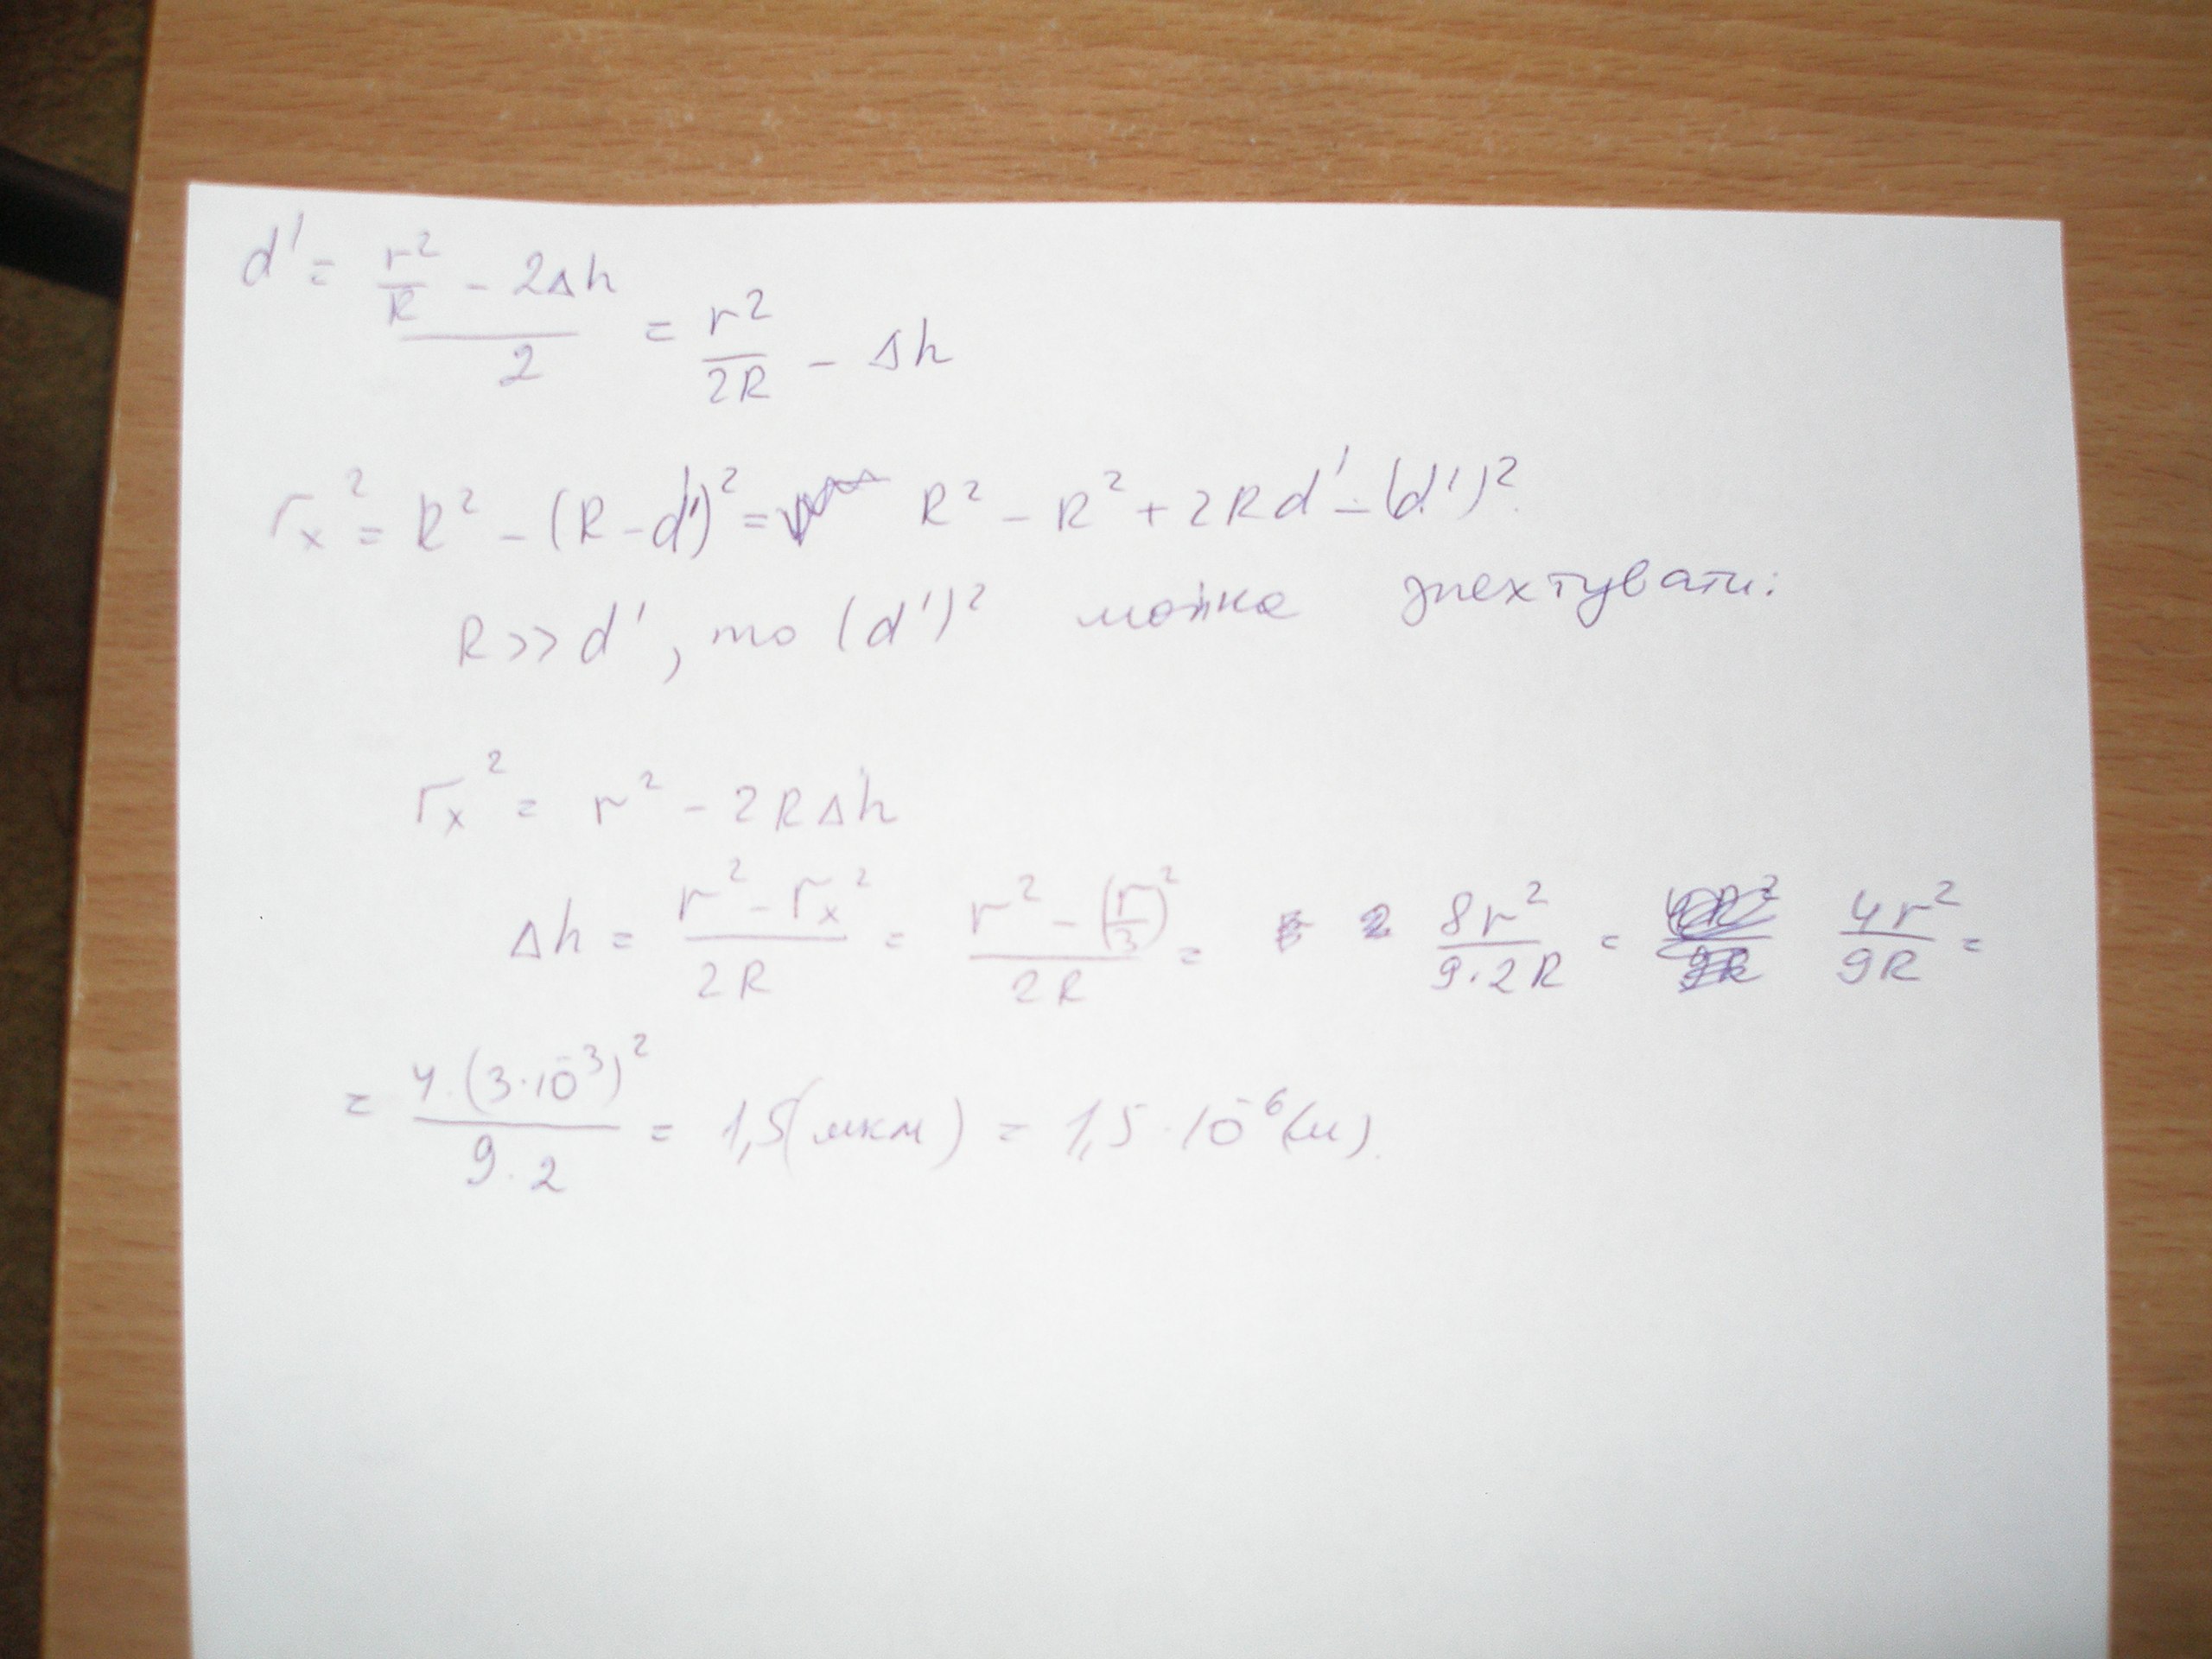 d' = (r²/R - 2Δh)/2 = r²/2R - Δh
r_x² = R² - (R - d')² = R² - R² + 2Rd' - (d')².
R >> d', то (d')² можна знехтувати:
r_x² = r² - 2RΔh
Δh = (r² - r_x²)/2R = (r² - (r/3)²)/2R = 8r²/9·2R = 4r²/9R =
= 4·(3·10⁻³)²/9·2 = 1,5(мкм) = 1,5·10⁻⁶(м).